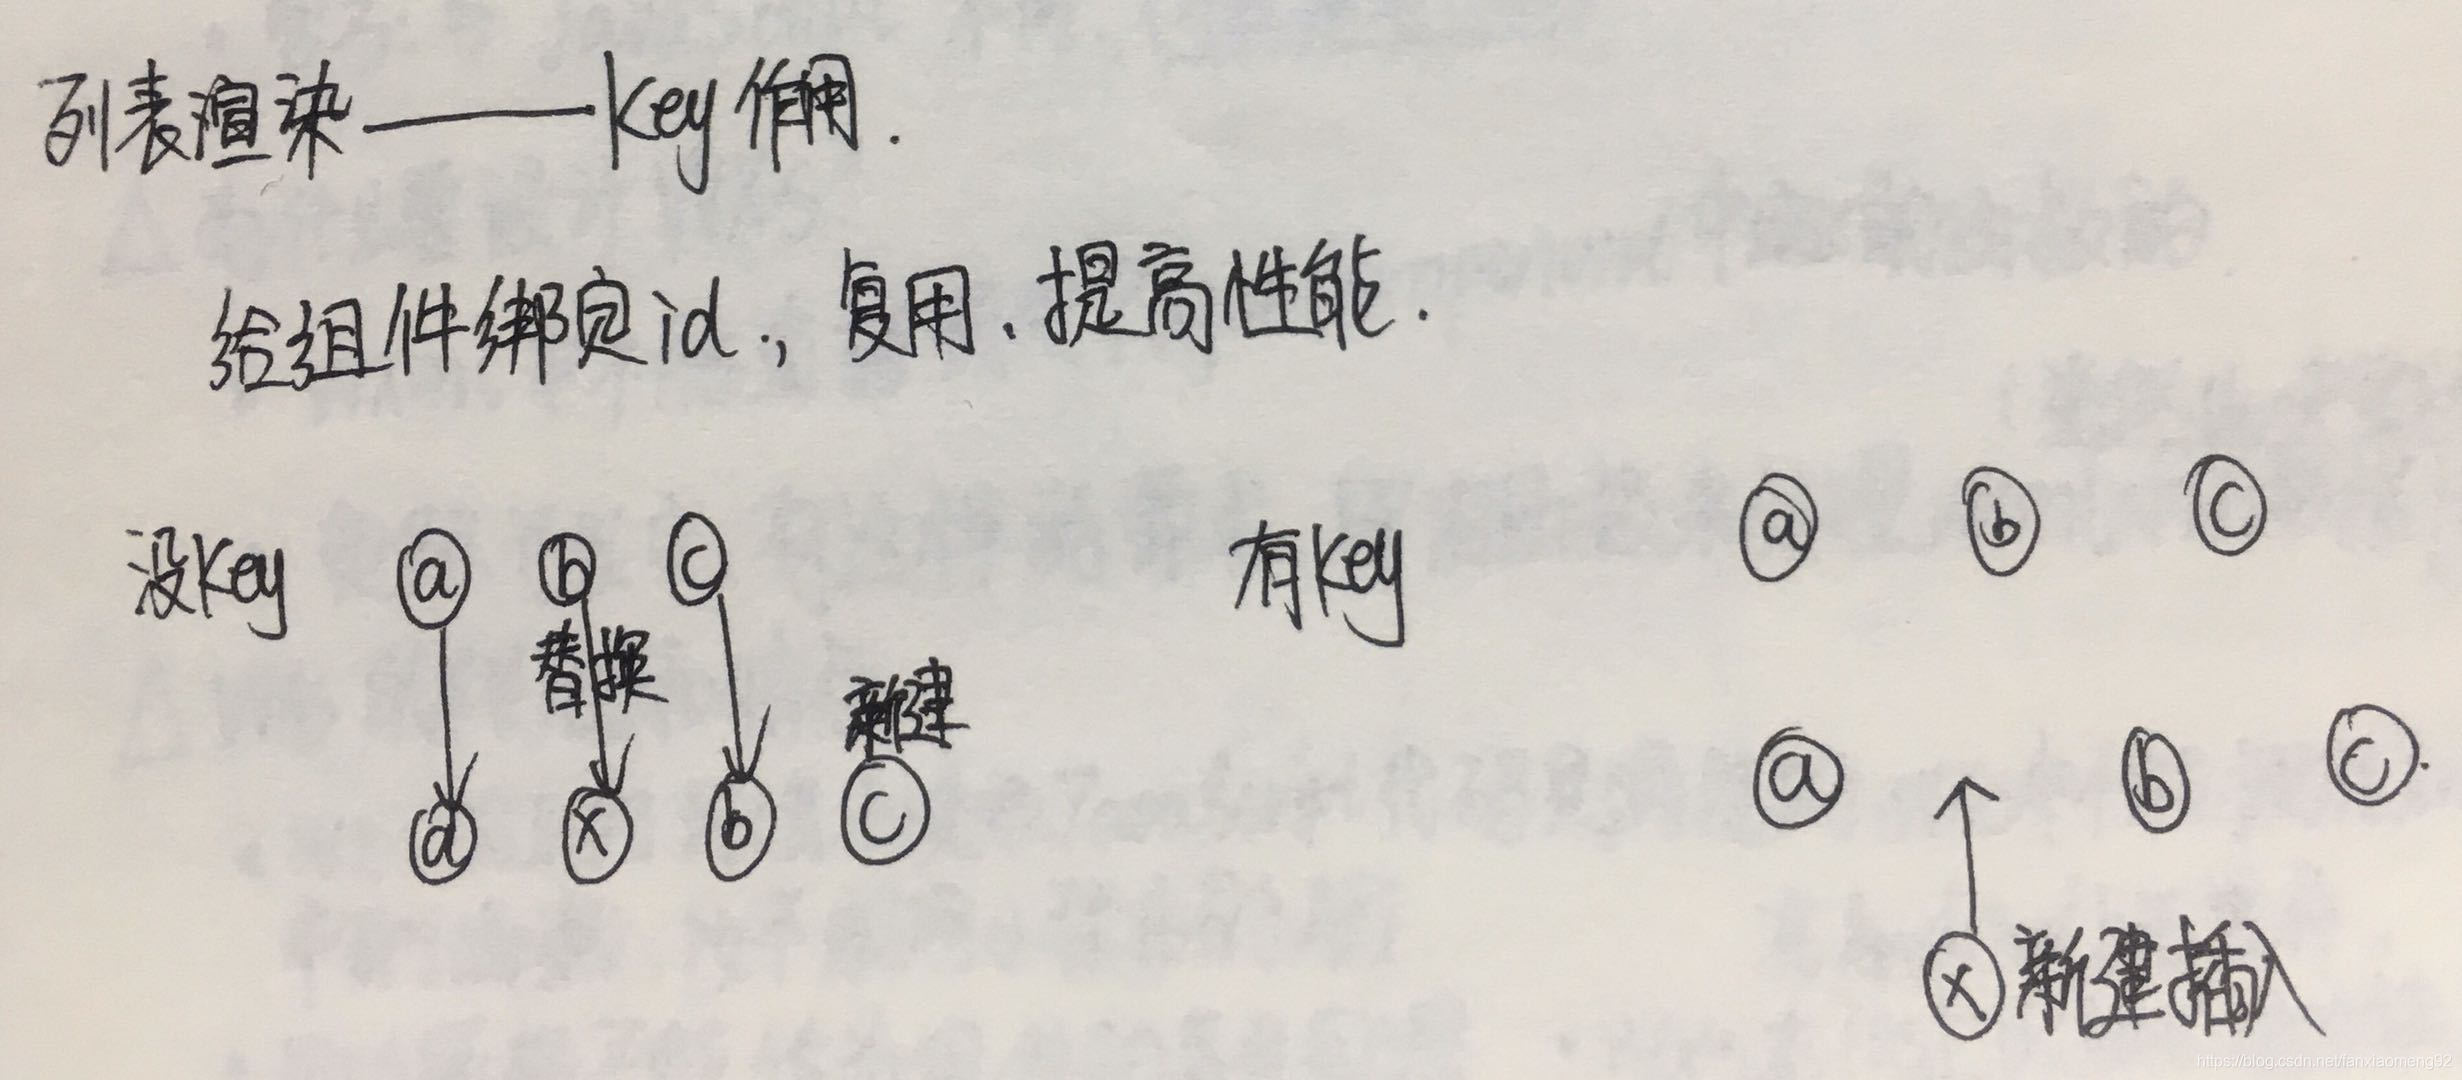 列表渲染——key作用.
给组件绑定id.,复用、提高性能.
没key a b c
替换
新建
a x b c
有key a b c
a b c.
x 新建插入
https://blog.csdn.net/fanxiaomeng92